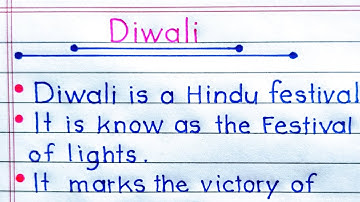 Diwali
• Diwali is a Hindu festival
• It is know as the Festival
of lights.
• It marks the victory of